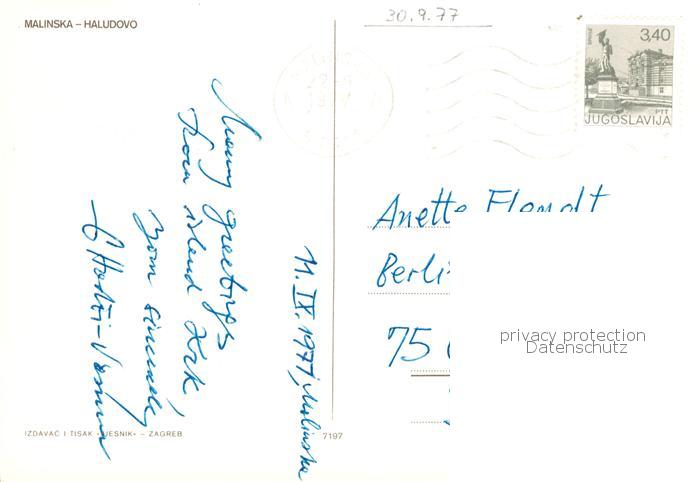 MALINSKA – HALUDOVO
30.9.77
3,40
PTT
JUGOSLAVIJA
Many greetings
from island Krk,
Your sincerely
11. IX. 1977, Malinska
Anette
Berli
75
privacy protection
Datenschutz
IZDAVAČ I TISAK »VJESNIK« – ZAGREB
7197